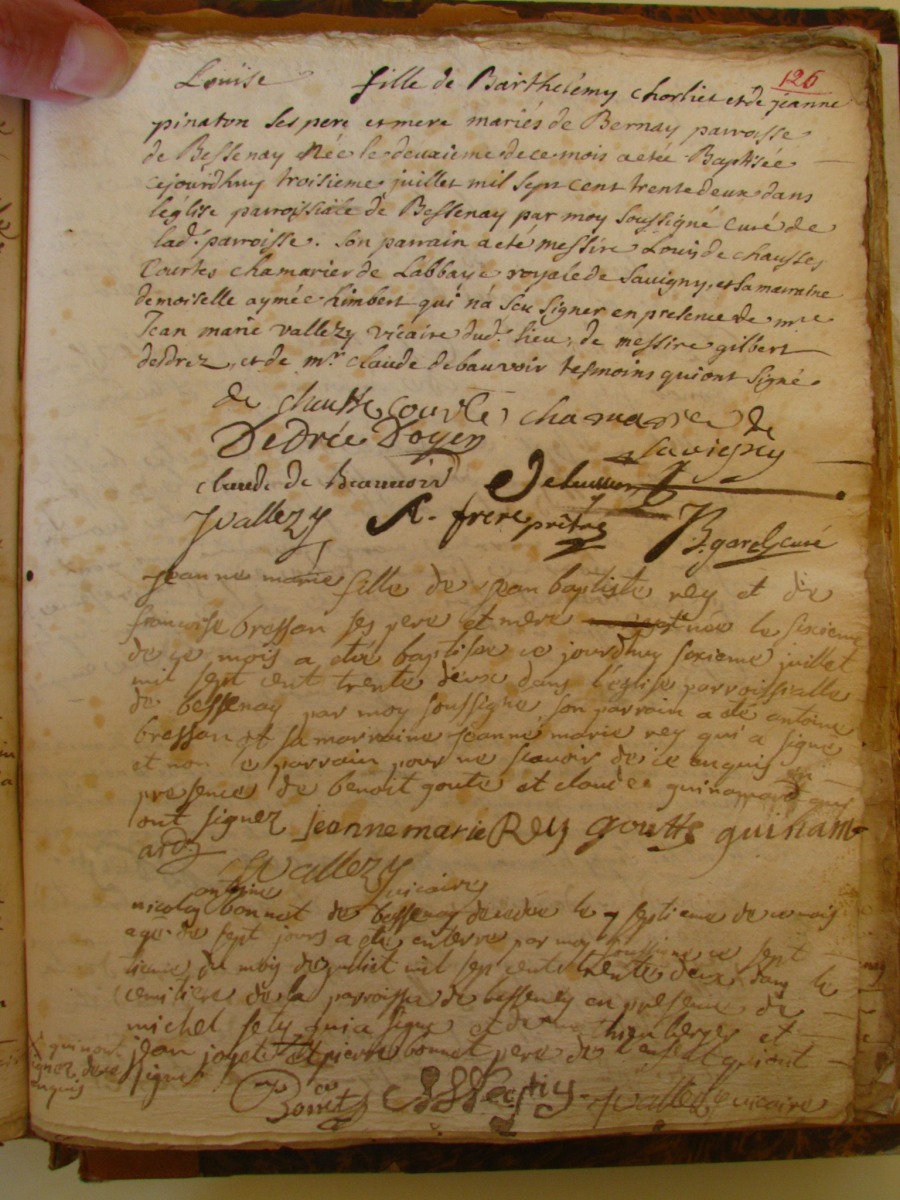 126
Louise fille de Barthelemy chorliet et de jeanne
pinaton ses pere et mere mariés de Bernay parroisse
de Bessenay Née le deuxieme de ce mois a etée Baptisée
cejourdhuy troisieme juillet mil sept cent trente deux dans
l'église parroissiale de Bessenay par moy soussigné curé de
lad. parroisse. son parrain a eté messire Louis de chausses
Courtes chamarier de Labbaye royale de Savigny, et sa marraine
demoiselle aymée himbert qui n'a sceu signer en presence de mre
Jean marie vallezy vicaire dud. lieu, de messire gilbert
dedrez, et de mr. claude de bauvoir tesmoins qui ont signé.
de chausse courte chamarie de
Savigny
Dedrée Doyen
claude de Beauvoir
Jvallezy frere prêtre B. garel curé
Jeanne marie fille de jean baptiste rey et de
francoise bresson ses pere et mere née le sixieme
de ce mois a ete baptisee ce jourdhuy sixieme juillet
mil sept cent trente deux dans l'eglise parroissialle
de bessenay par moy soussigne son parrain a été antoine
bresson et sa marraine jeanne marie rey qui a signé
et non le parrain pour ne scavoir de ce enquis en
presence de benoit goute et claude guinamard qui
ont signez jeanne marie Rey goutte guinam
ard
Jvallezy
vicaire
antoine
nicolas bonnet de bessenay decedee le septieme de ce mois
age de sept jours a ete enterre par moy soussigne ce sept
tieme du mois de juillet mil sept cent trente deux dans le
cemitiere de la parroisse de bessenay en presence de
michel qui a signe et de berger et
jean et pierre bonnet pere de l'enfant qui ont
signe
enquis
Jvallezy vicaire